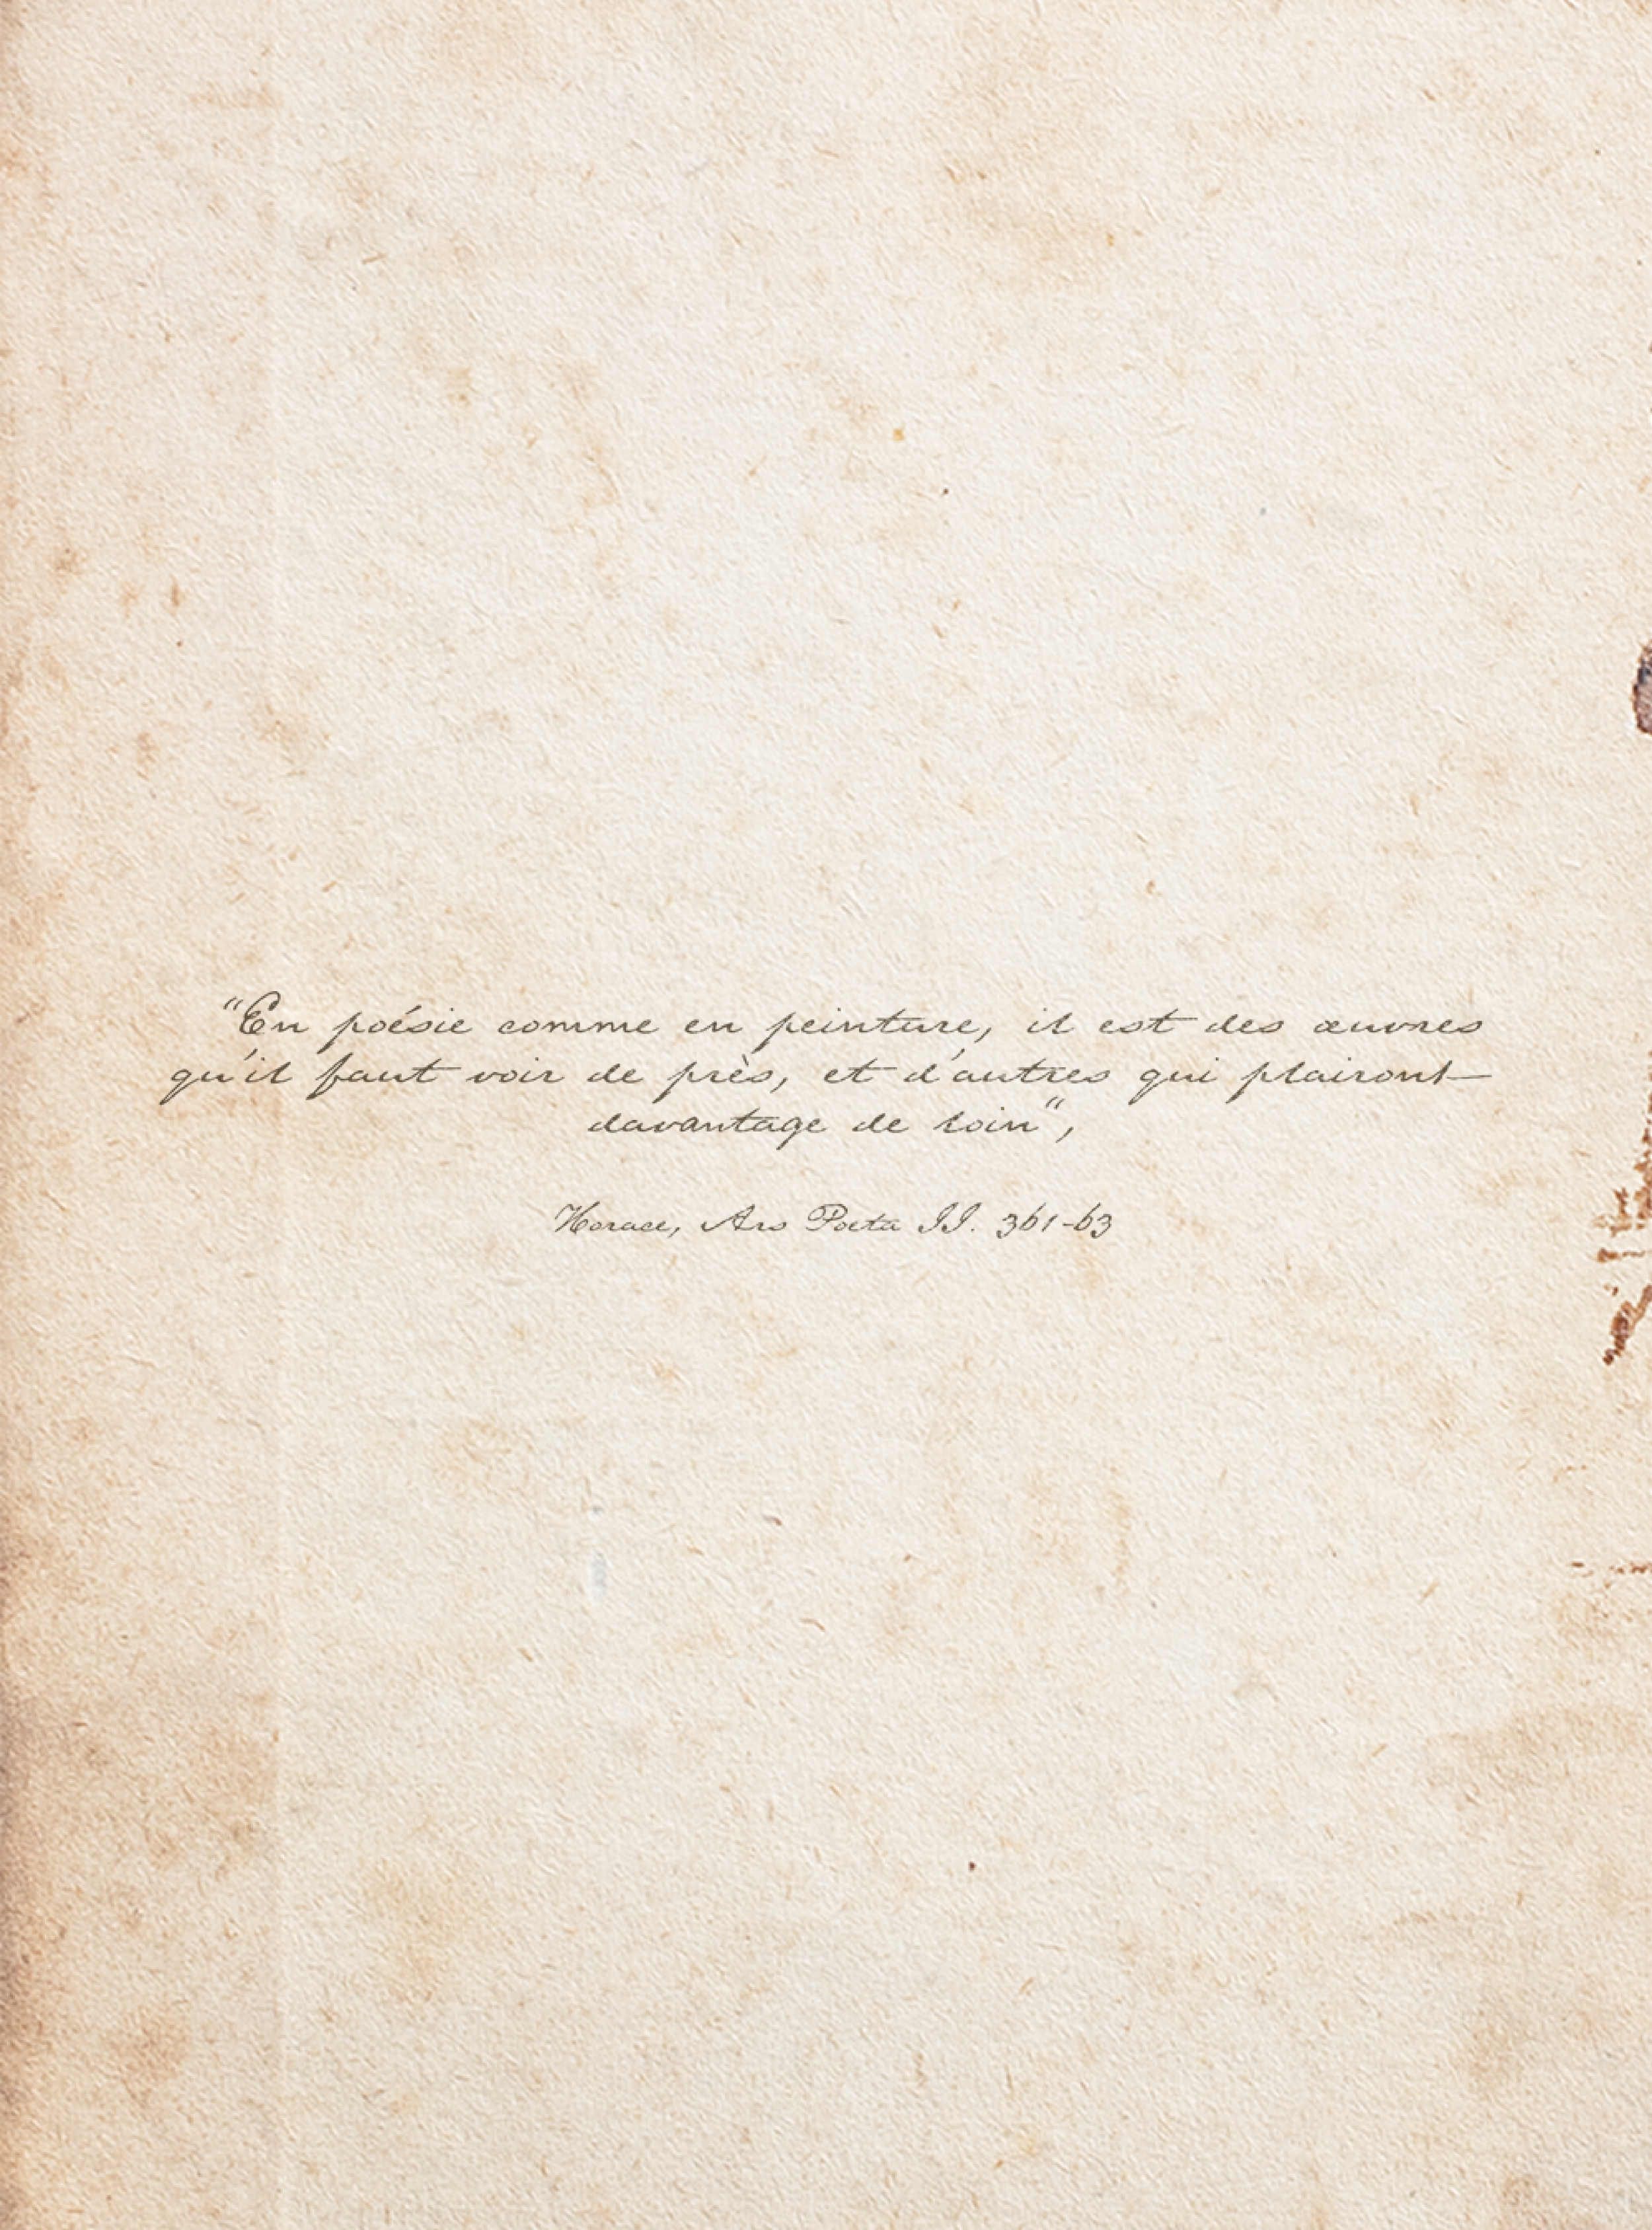 “En poésie comme en peinture, il est des œuvres
qu'il faut voir de près, et d'autres qui plairont
davantage de loin“,
Horace, Ars Poeta II. 361-63